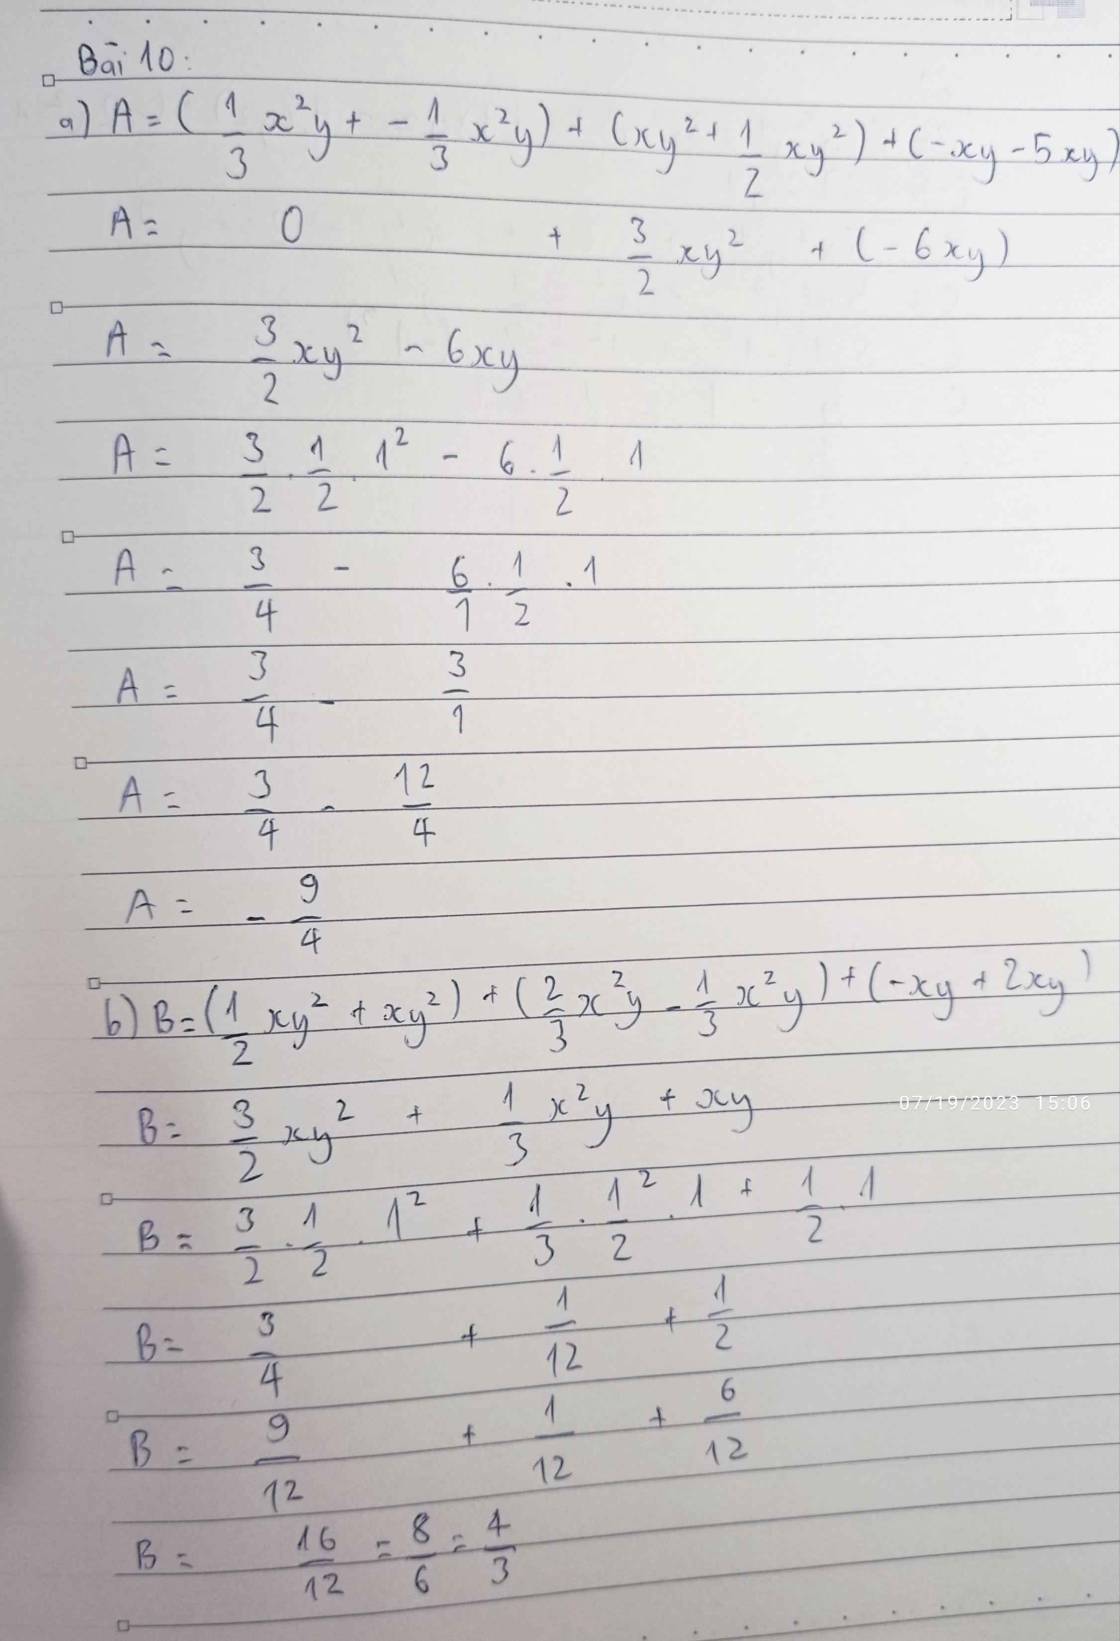 Bài 10:
a) A = (1/3 x²y + - 1/3 x²y) + (xy² + 1/2 xy²) + (-xy - 5xy)
A = 0 + 3/2 xy² + (-6xy)
A = 3/2 xy² - 6xy
A = 3/2 . 1/2 . 1² - 6 . 1/2 . 1
A = 3/4 - 6/1 . 1/2 . 1
A = 3/4 - 3/1
A = 3/4 - 12/4
A = - 9/4
b) B = (1/2 xy² + xy²) + (2/3 x²y - 1/3 x²y) + (-xy + 2xy)
B = 3/2 xy² + 1/3 x²y + xy
07/19/2023 15:06
B = 3/2 . 1/2 . 1² + 1/3 . 1²/2 . 1 + 1/2 . 1
B = 3/4 + 1/12 + 1/2
B = 9/12 + 1/12 + 6/12
B = 16/12 = 8/6 = 4/3